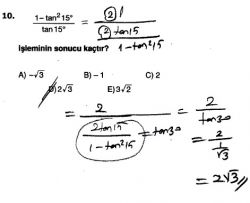 10. 1-tan²15° / tan15° = 2·1 / (2 tan15 / 1-tan²15)
işleminin sonucu kaçtır?
A) -√3 B) -1 C) 2
D) 2√3 E) 3√2
= 2 / (2tan15 / 1-tan²15) = tan30 = 2 / tan30
= 2 / (1/√3)
= 2√3 //